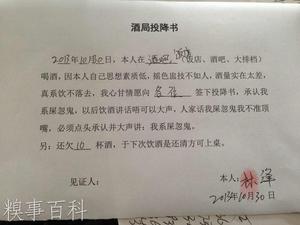 酒局投降书
2013年10月30日，本人在酒吧（饭店、酒吧、大排档）
喝酒，因本人自己思想素质低，猥色出技不如人，酒量实在太差，
真系饮不落去，我心甘情愿向各位签下投降书，承认我
系屎忽鬼，以后饮酒讲话唔可以大声，人家话我屎忽鬼我不准顶
嘴，必须点头承认并大声讲：我系屎忽鬼。
另：还欠10杯酒，于下次饮酒是还清方可上桌。
见证人：
本人：林泽
2013年10月30日
糗事百科